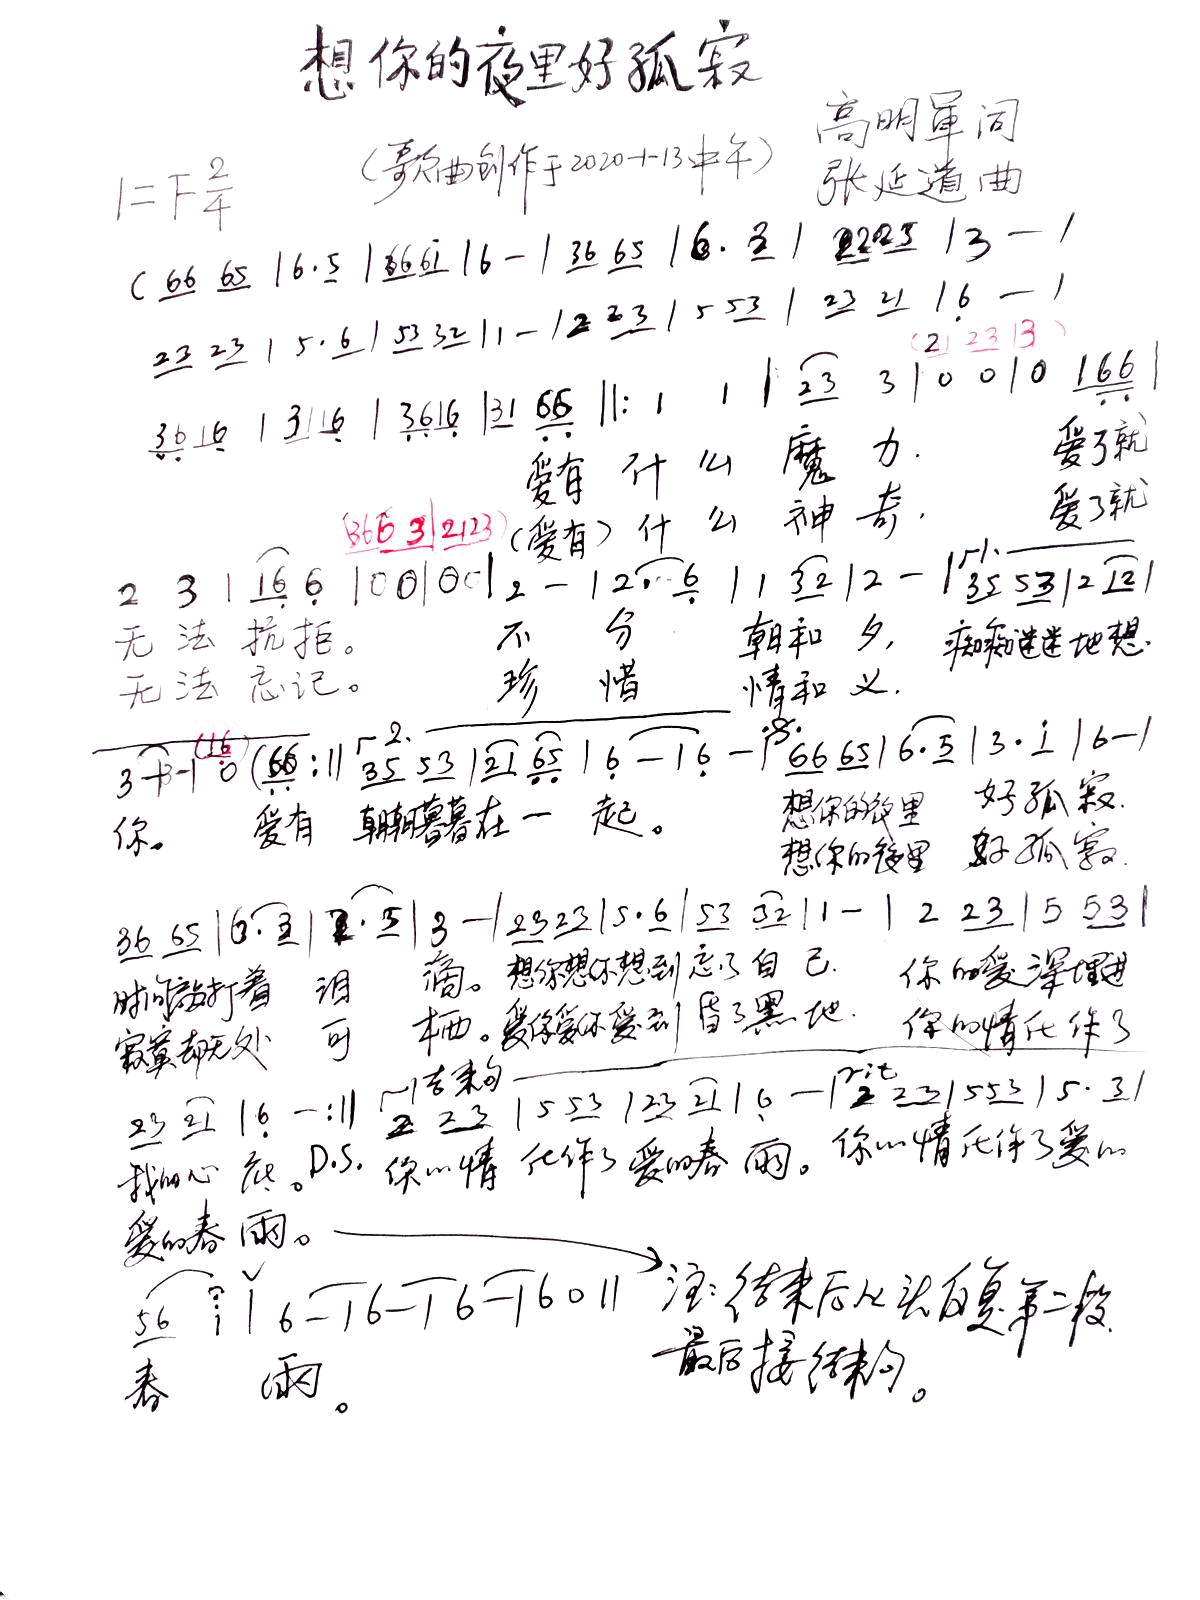 想你的夜里好孤寂
(歌曲创作于2020-1-13中午)
高明军词
张延道曲
1=F 2/4
(66 65 |6·5 |6661 |6 - |36 65 |6·3 | 2223 |3 - |
23 23 | 5·6 | 53 32 |1 - |2 23 | 5 53 | 23 21 |6 - |
(21 23 |3 )
3616 | 3116 | 3616 |31 66 ||: 1 1 | 23 3 |0 0 |0 166 |
爱有 什么 魔力. 爱了就
(爱有)什么 神奇. 爱了就
(366 3|2123)
2 3 | 16 6 |00|00| 2 - |2· 6 |1 32 |2 - |1. 35 53 |2 12 |
无法抗拒。 不分 朝和夕, 痴痴迷迷地想.
无法忘记。 珍惜 情和义.
(16)
3 - |3 - | 0 (66 :|| 2. 35 53 |21 65 |6 - |6 - | 66 65 |6·5 |3·i |6 - |
你。 爱有 朝朝暮暮在一起。 想你的夜里 好孤寂.
想你的夜里 好孤寂.
36 65 |6·3 |2·3 |3 - |23 23 |5·6 |53 32 |1 - | 2 23 |5 53 |
时间敲打着 泪滴。想你想你想到忘了自己. 你的爱深埋进
寂寞却无处可栖。爱你爱你爱到昏了黑地. 你的情化作了
结束句
rit
23 21 |6 - :|| 2 23 |5 53 |23 21 |6 - |2 23 |5 53 |5·3 |
我的心底。D.S. 你的情化作了爱的春雨。你的情化作了爱的
爱的春雨。
56 i | 6 - |6 - |6 - |6 0 ||
春 雨。
注:结束后从头反复第二段
最后接结束句。